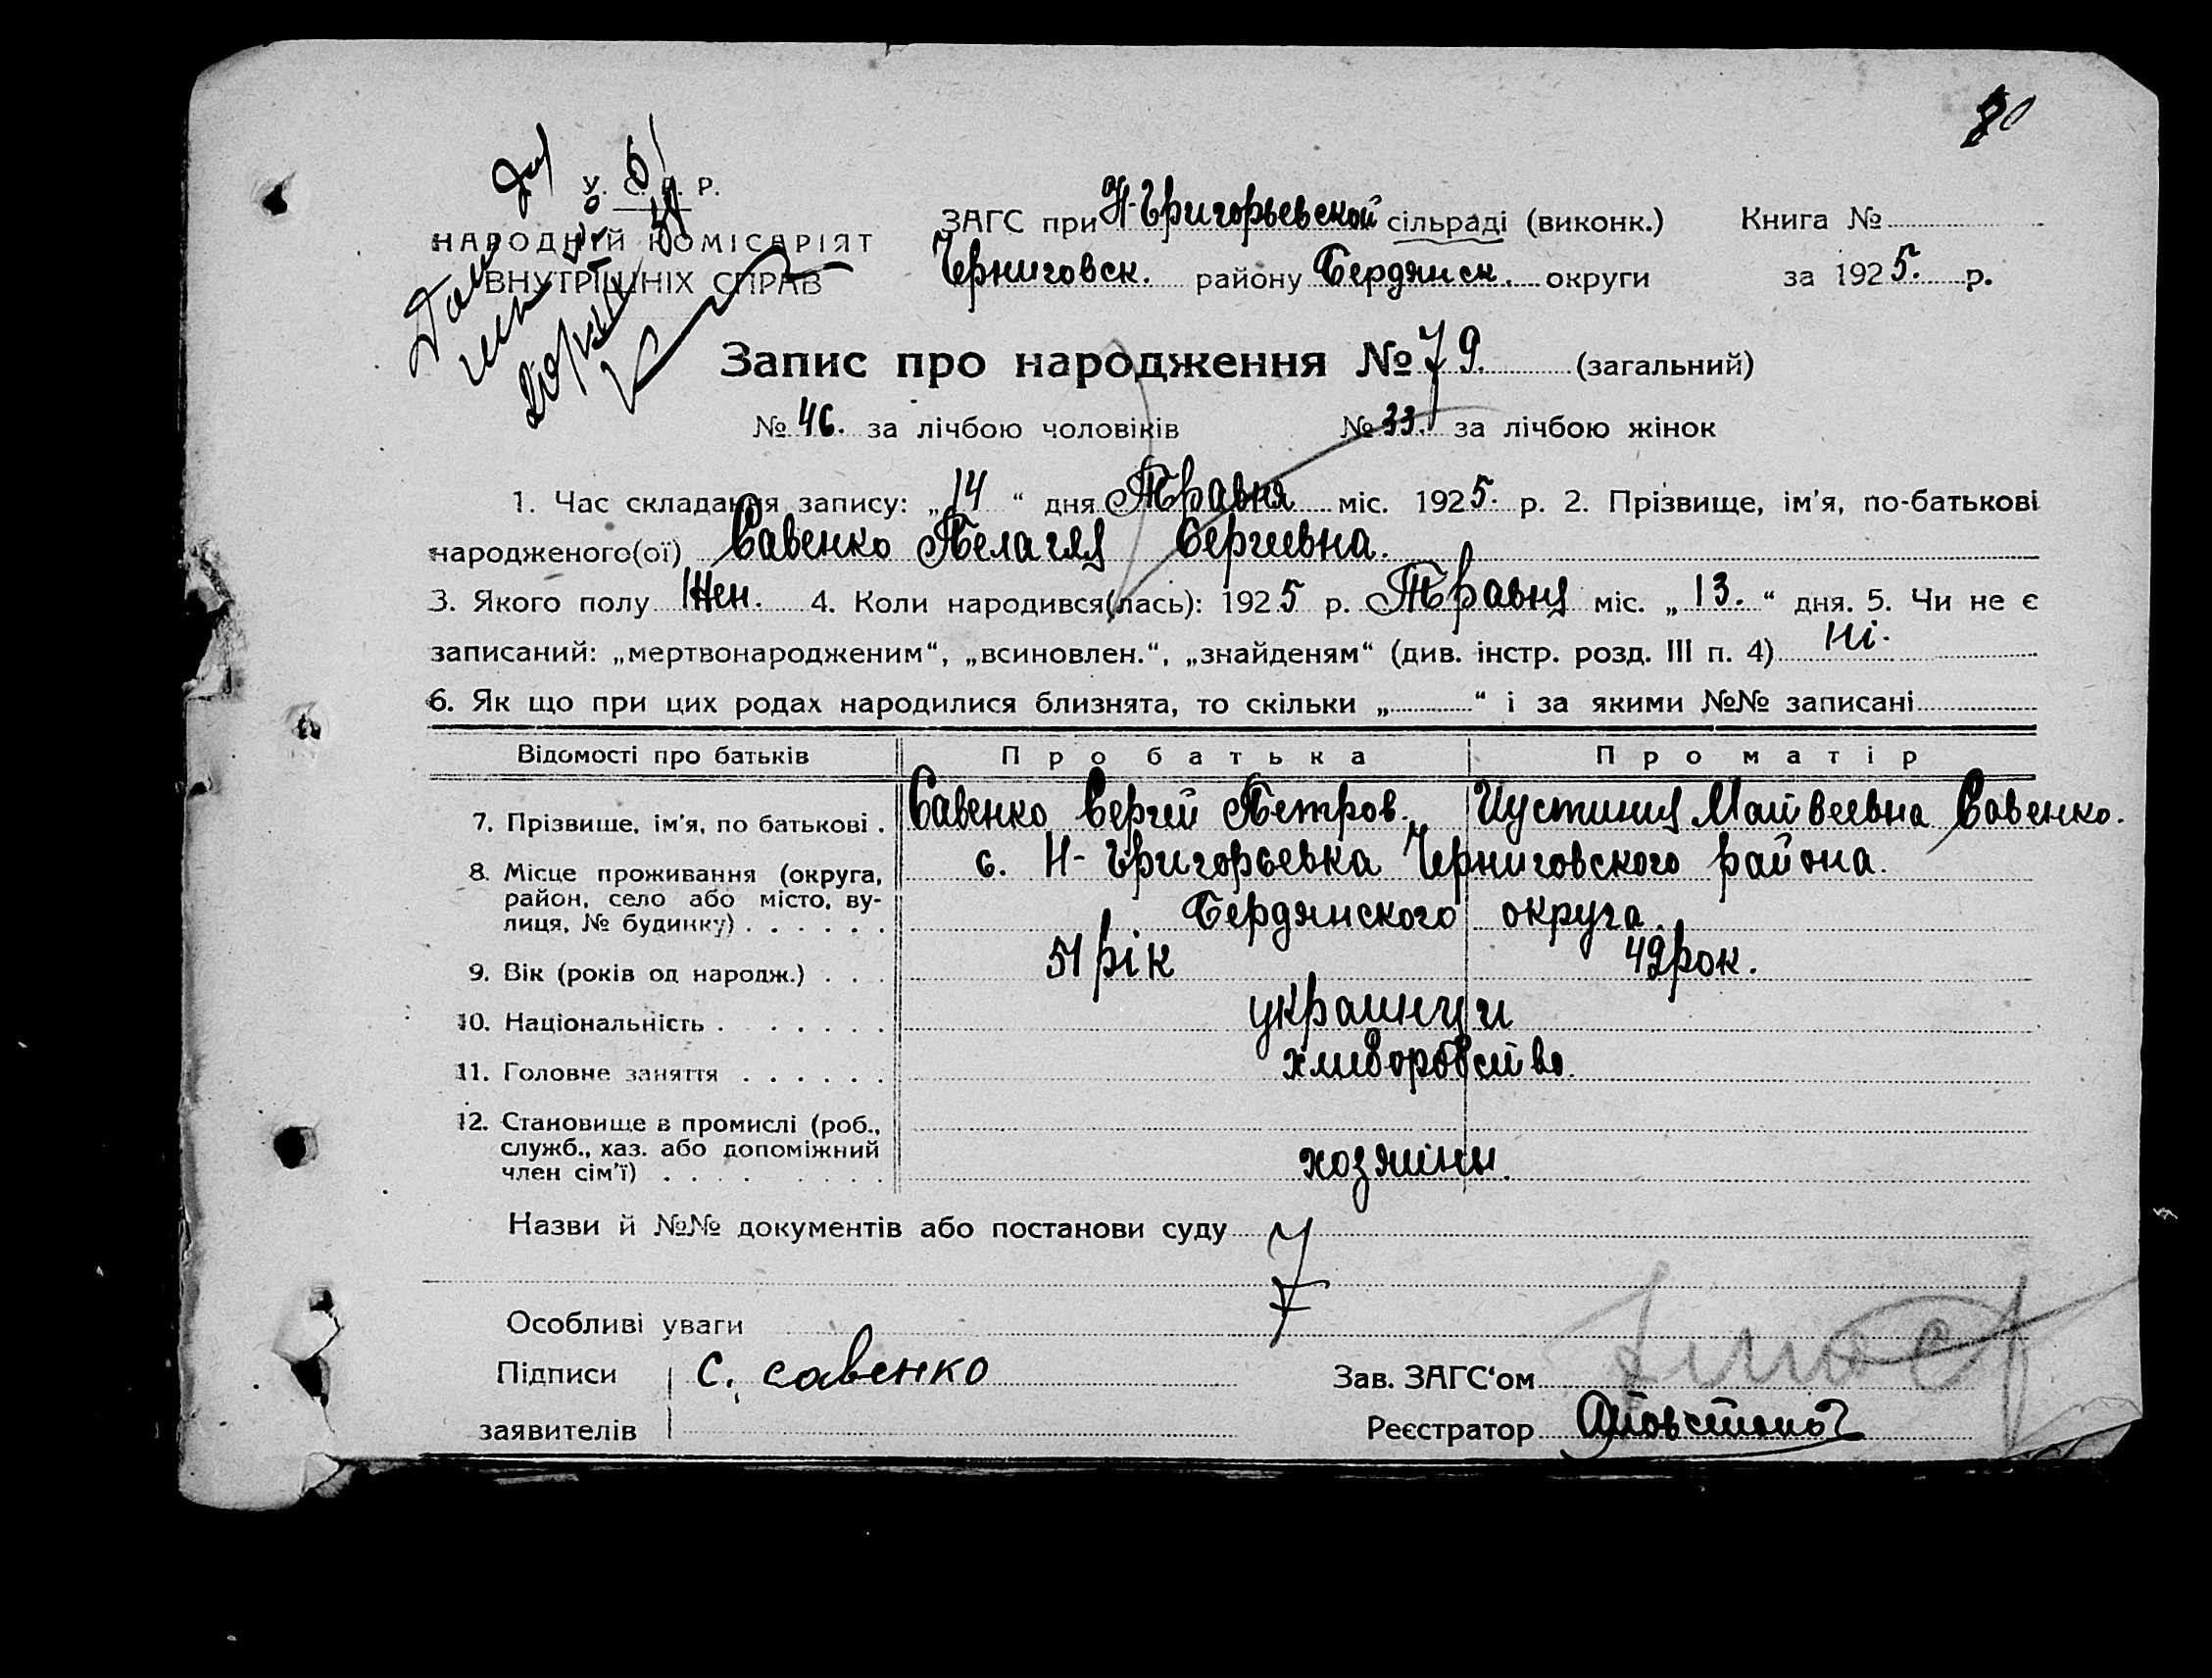 80
У. С. Р. Р.
НАРОДНІЙ КОМІСАРІЯТ
ВНУТРІШНІХ СПРАВ
ЗАГС при Н-Григорьевской сільраді (виконк.) Книга №
Черниговск. району Бердянск. округи за 1925. р.
Запис про народження № 79. (загальний)
№ 46. за лічбою чоловіків № 33. за лічбою жінок
1. Час складання запису: „14“ дня Травня міс. 1925. р. 2. Прізвище, ім'я, по-батькові
народженого(ої) Савенко Пелагея Сергиевна.
3. Якого полу Жен. 4. Коли народився(лась): 1925 р. Травня міс. „13.“ дня. 5. Чи не є
записаний: „мертвонародженим“, „всиновлен.“, „знайденям“ (див. інстр. розд. III п. 4) Ні.
6. Як що при цих родах народилися близнята, то скільки „ “ і за якими №№ записані
Відомості про батьків Про батька Про матір
7. Прізвище, ім'я, по батькові . Савенко Сергей Петров. Иустиния Матвеевна Савенко.
8. Місце проживання (округа, с. Н-Григорьевка Черниговского района.
район, село або місто, ву-
лиця, № будинку) . . . . . . Бердянского округа.
9. Вік (років од народж.) . . . 51 рік 42 рок.
10. Національність . . . . . . украинци
11. Головне заняття . . . . . . хлиборобство.
12. Становище в промислі (роб.,
служб., хаз. або допоміжний
член сім'ї) . . . . . . . . хозяини.
Назви й №№ документів або постанови суду
Особливі уваги
Підписи С. Савенко Зав. ЗАГС'ом
заявителів Реєстратор